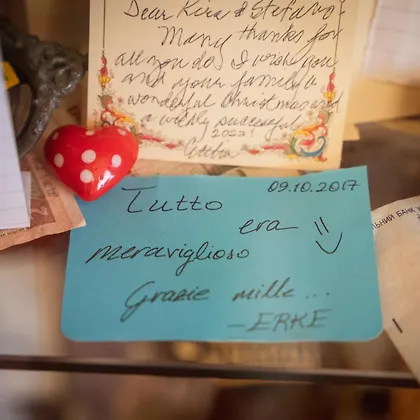 Dear Kira & Stefano -
Many thanks for
all you do. I wish you
and your family a
wonderful Christmas and
a wildly successful
2022!
09.10.2017
Tutto
era
meraviglioso
Grazie mille ...
- ERKE